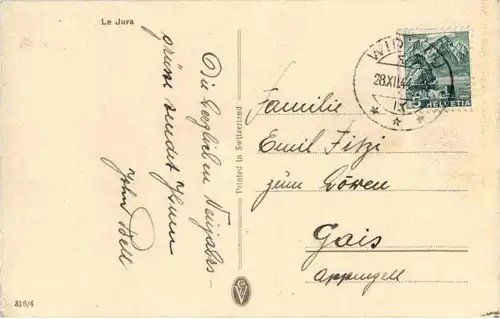 Le Jura
Die herzlichen Neujahrs-
grüsse sendet Ihnen
John Bell
Printed in Switzerland
28.XII.4
5 HELVETIA
Familie
Emil Fitzi
zum Löwen
Gais
Appenzell
316/4